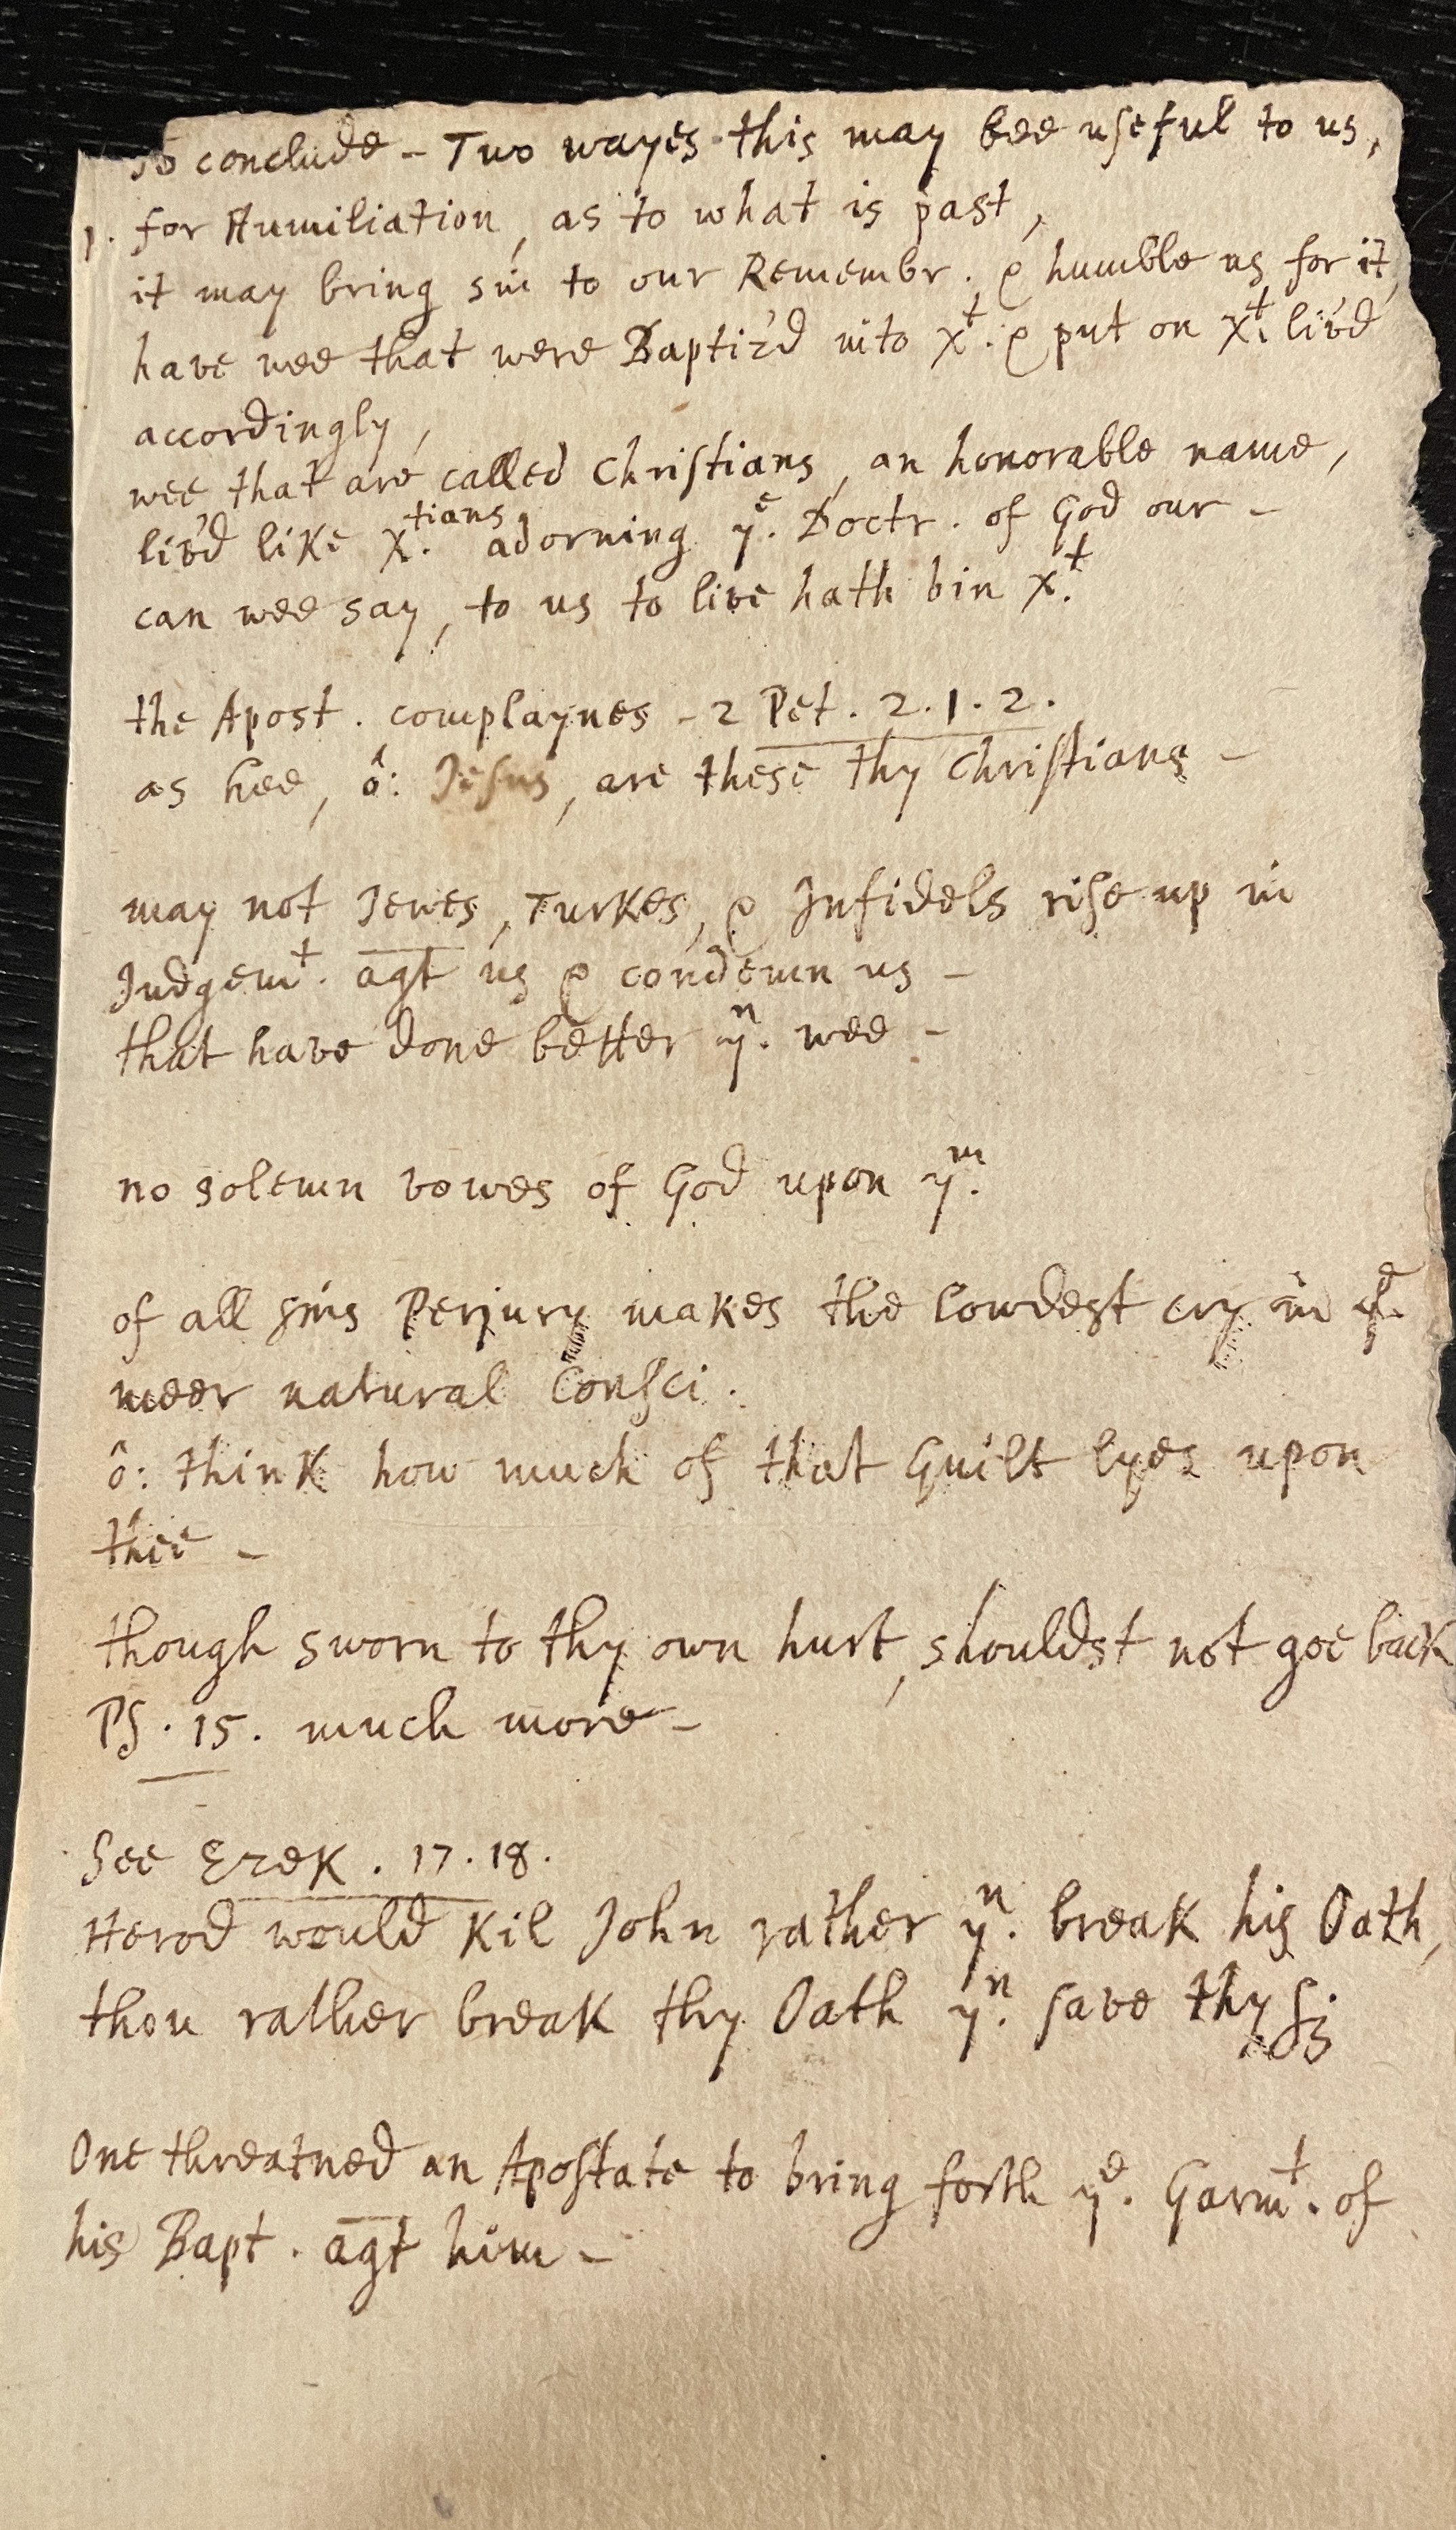 to conclude - Two wayes this may bee useful to us,
1. for Humiliation, as to what is past,
it may bring sin to our Remembr. & humble us for it,
have wee that were Baptiz'd into X^t. & put on X^t. liv'd
accordingly,
wee that are called Christians, an honorable name,
liv'd like X^tians. adorning y^e. Doctr. of God our -
can wee say, to us to live hath bin X^t.
the Apost. complaynes - 2 Pet. 2.1.2.
as hee, ô: Jesus, are these thy Christians -
may not Jewes, Turkes, & Infidels rise up in
Judgem^t. agt us & condemn us -
that have done better y^n. wee -
no solemn vowes of God upon y^m.
of all sins Perjury makes the lowdest cry in y^e.
meer natural Consci.
ô: think how much of that Guilt lyes upon
thee -
though sworn to thy own hurt, shouldst not goe back
PS. 15. much more -
See Ezek. 17.18.
Herod would kil John rather y^n. break his Oath,
thou rather break thy Oath y^n. save thy
One threatned an Apostate to bring forth y^e. Garm^t. of
his Bapt. agt him -